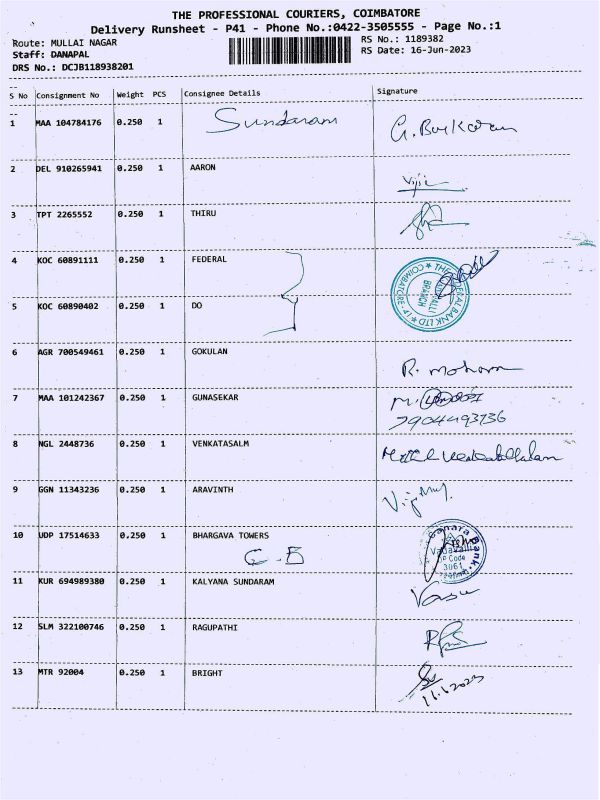 THE PROFESSIONAL COURIERS, COIMBATORE
Delivery Runsheet - P41 - Phone No.:0422-3505555 - Page No.:1
Route: MULLAI NAGAR
RS No.: 1189382
Staff: DANAPAL
RS Date: 16-Jun-2023
DRS No.: DCJB118938201
S No Consignment No Weight PCS Consignee Details Signature
1 MAA 104784176 0.250 1 Sundaram
2 DEL 910265941 0.250 1 AARON
3 TPT 2265552 0.250 1 THIRU
4 KOC 60891111 0.250 1 FEDERAL
5 KOC 60890402 0.250 1 DO
6 AGR 700549461 0.250 1 GOKULAN R. mohan
7 MAA 101242367 0.250 1 GUNASEKAR
7904493736
8 NGL 2448736 0.250 1 VENKATASALM
9 GGN 11343236 0.250 1 ARAVINTH
10 UDP 17514633 0.250 1 BHARGAVA TOWERS Canara Bank
C-B
11 KUR 694989380 0.250 1 KALYANA SUNDARAM Vasu
12 SLM 322100746 0.250 1 RAGUPATHI
13 MTR 92004 0.250 1 BRIGHT